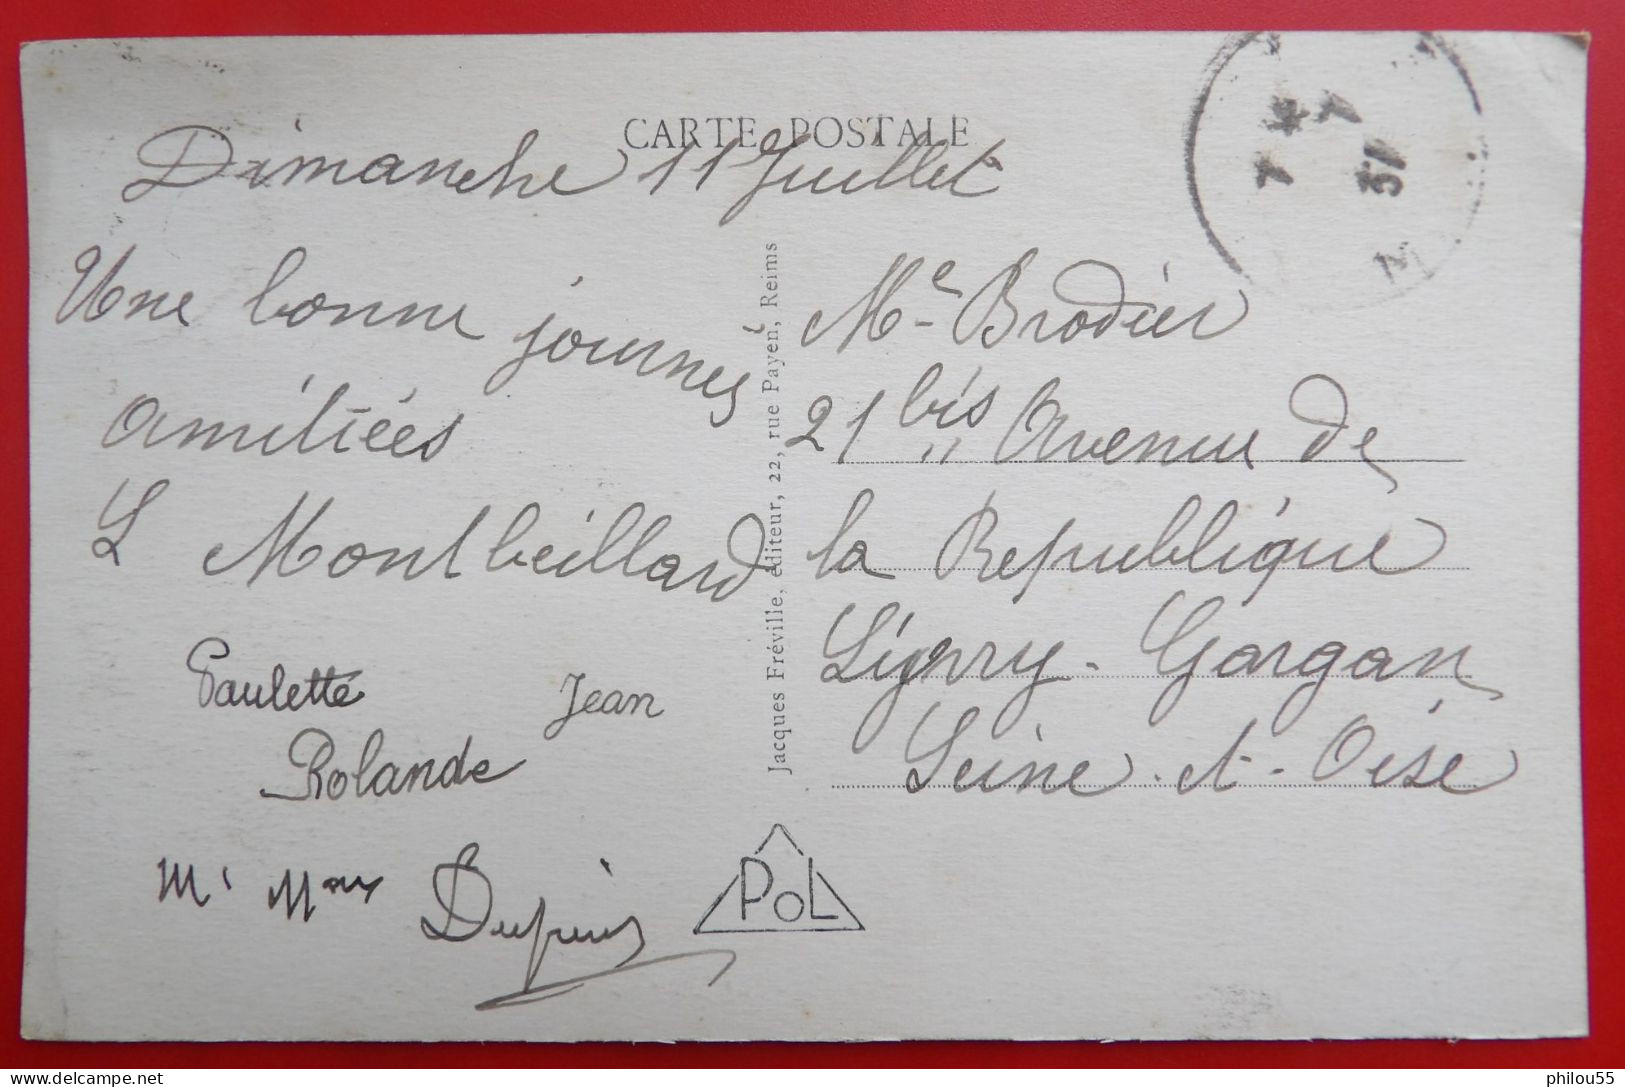 CARTE POSTALE
Dimanche 11 Juillet
Une bonne journes
amitiées
L Montbeillard
Paulette Jean
Rolande
Mr Mme Dupuis
Jacques Fréville, éditeur, 22, rue Payen, Reims
PoL
7 *
7
31
Me Brodier
21 bis Avenue de
la Republique
Livry-Gargan
Seine-et-Oise
delcampe.net
philou55